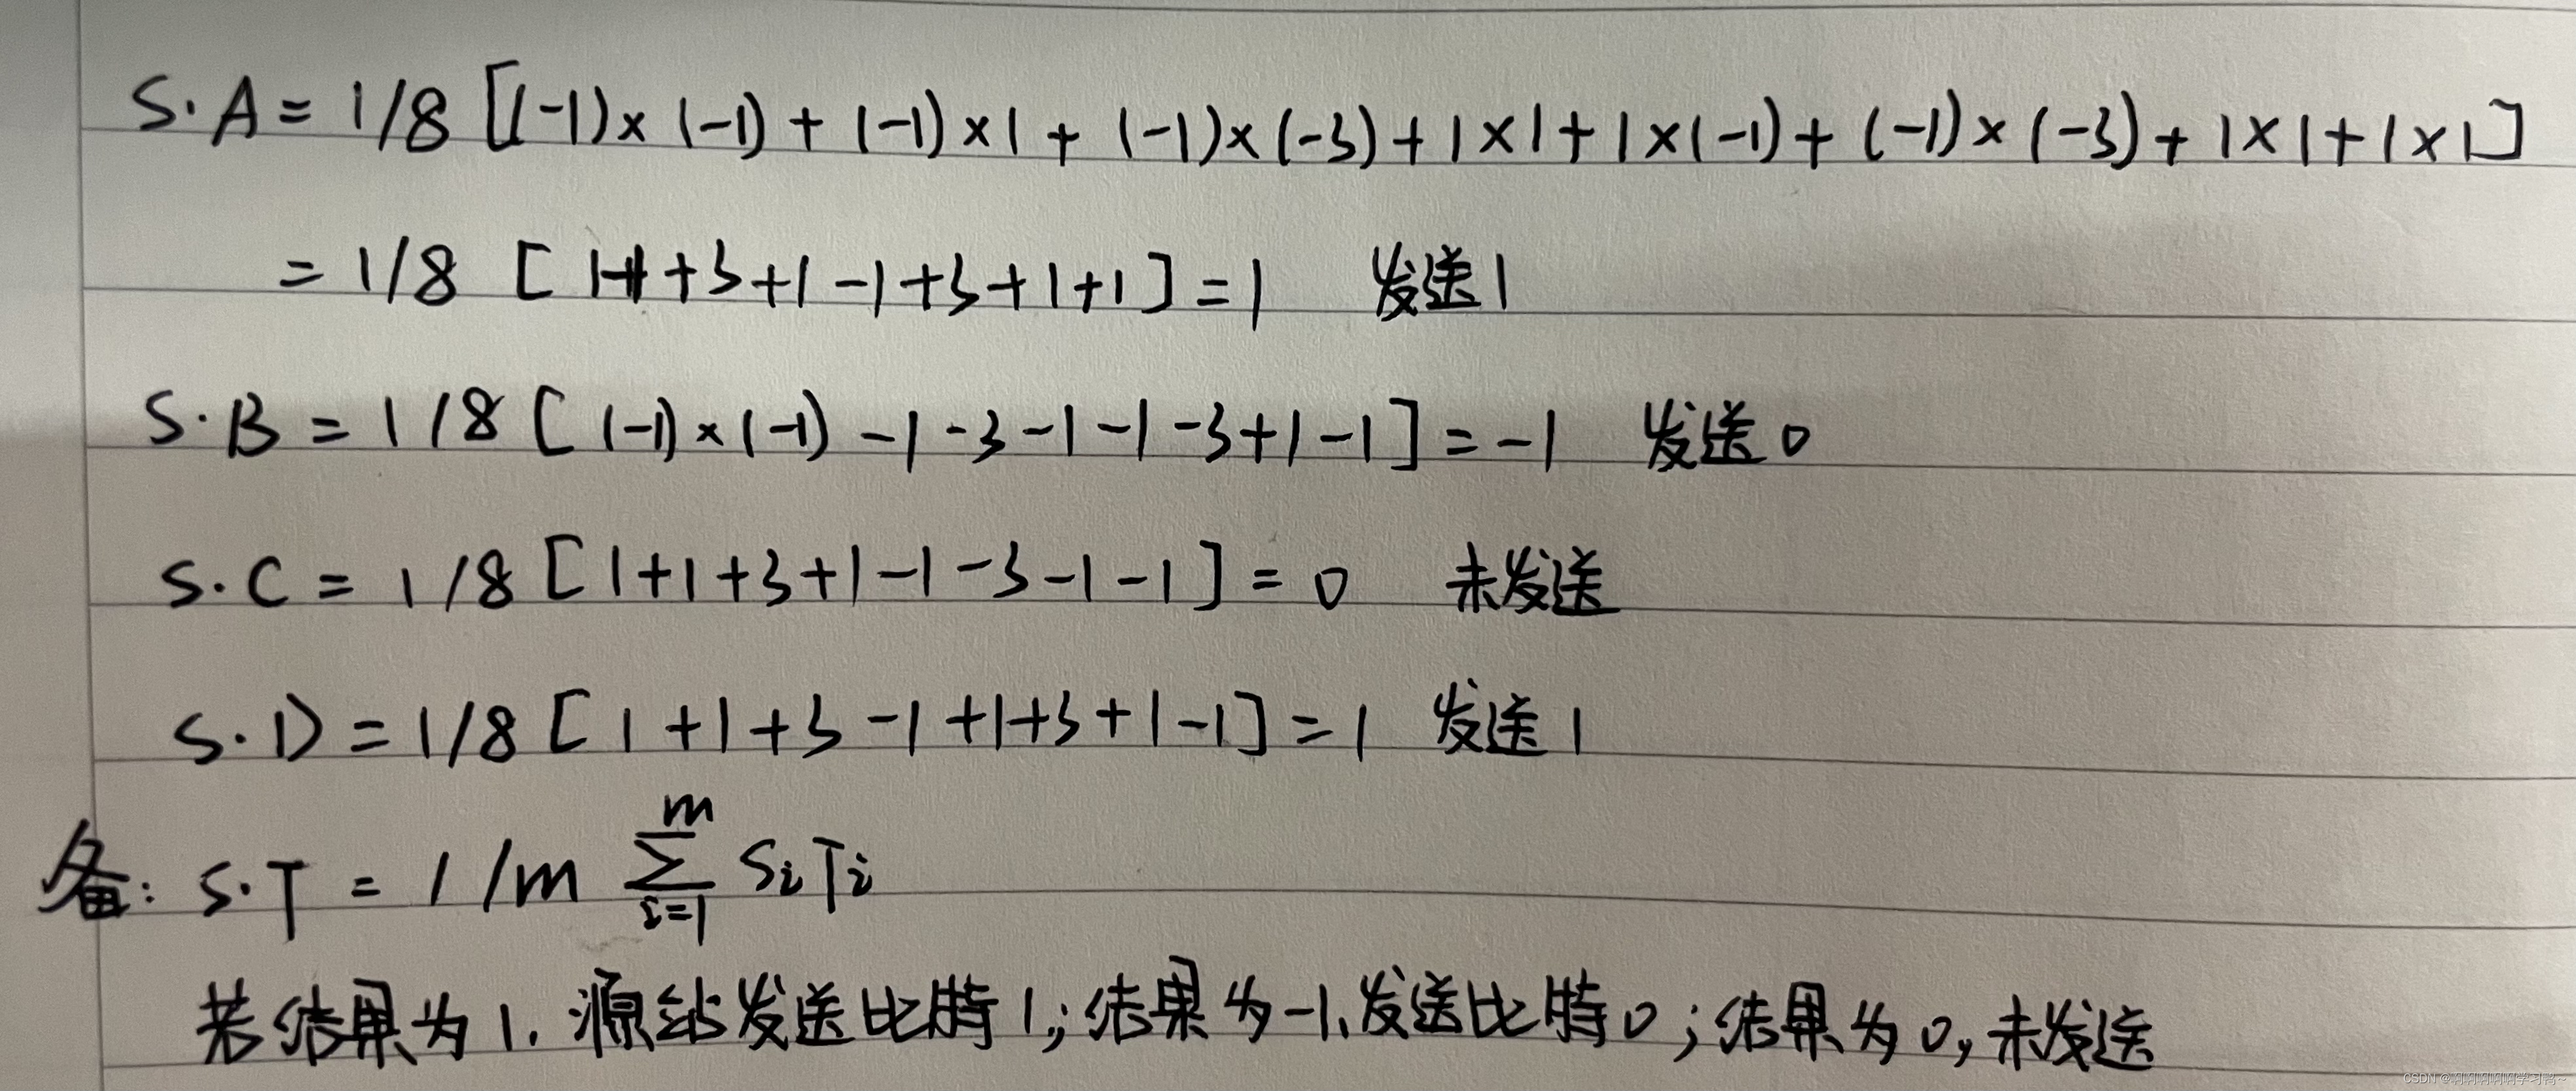 S·A = 1/8 [(-1)×(-1) + (-1)×1 + (-1)×(-3) + 1×1 + 1×(-1) + (-1)×(-3) + 1×1 + 1×1]
= 1/8 [1-1+3+1-1+3+1+1] = 1 发送1
S·B = 1/8 [(-1)×(-1) -1-3-1-1-3+1-1] = -1 发送0
S·C = 1/8 [1+1+3+1-1-3-1-1] = 0 未发送
S·D = 1/8 [1+1+3-1+1+3+1-1] = 1 发送1
备: S·T = 1/m ∑_{i=1}^{m} SiTi
若结果为1. 源站发送比特1,; 结果为-1、发送比特0; 结果为0, 未发送